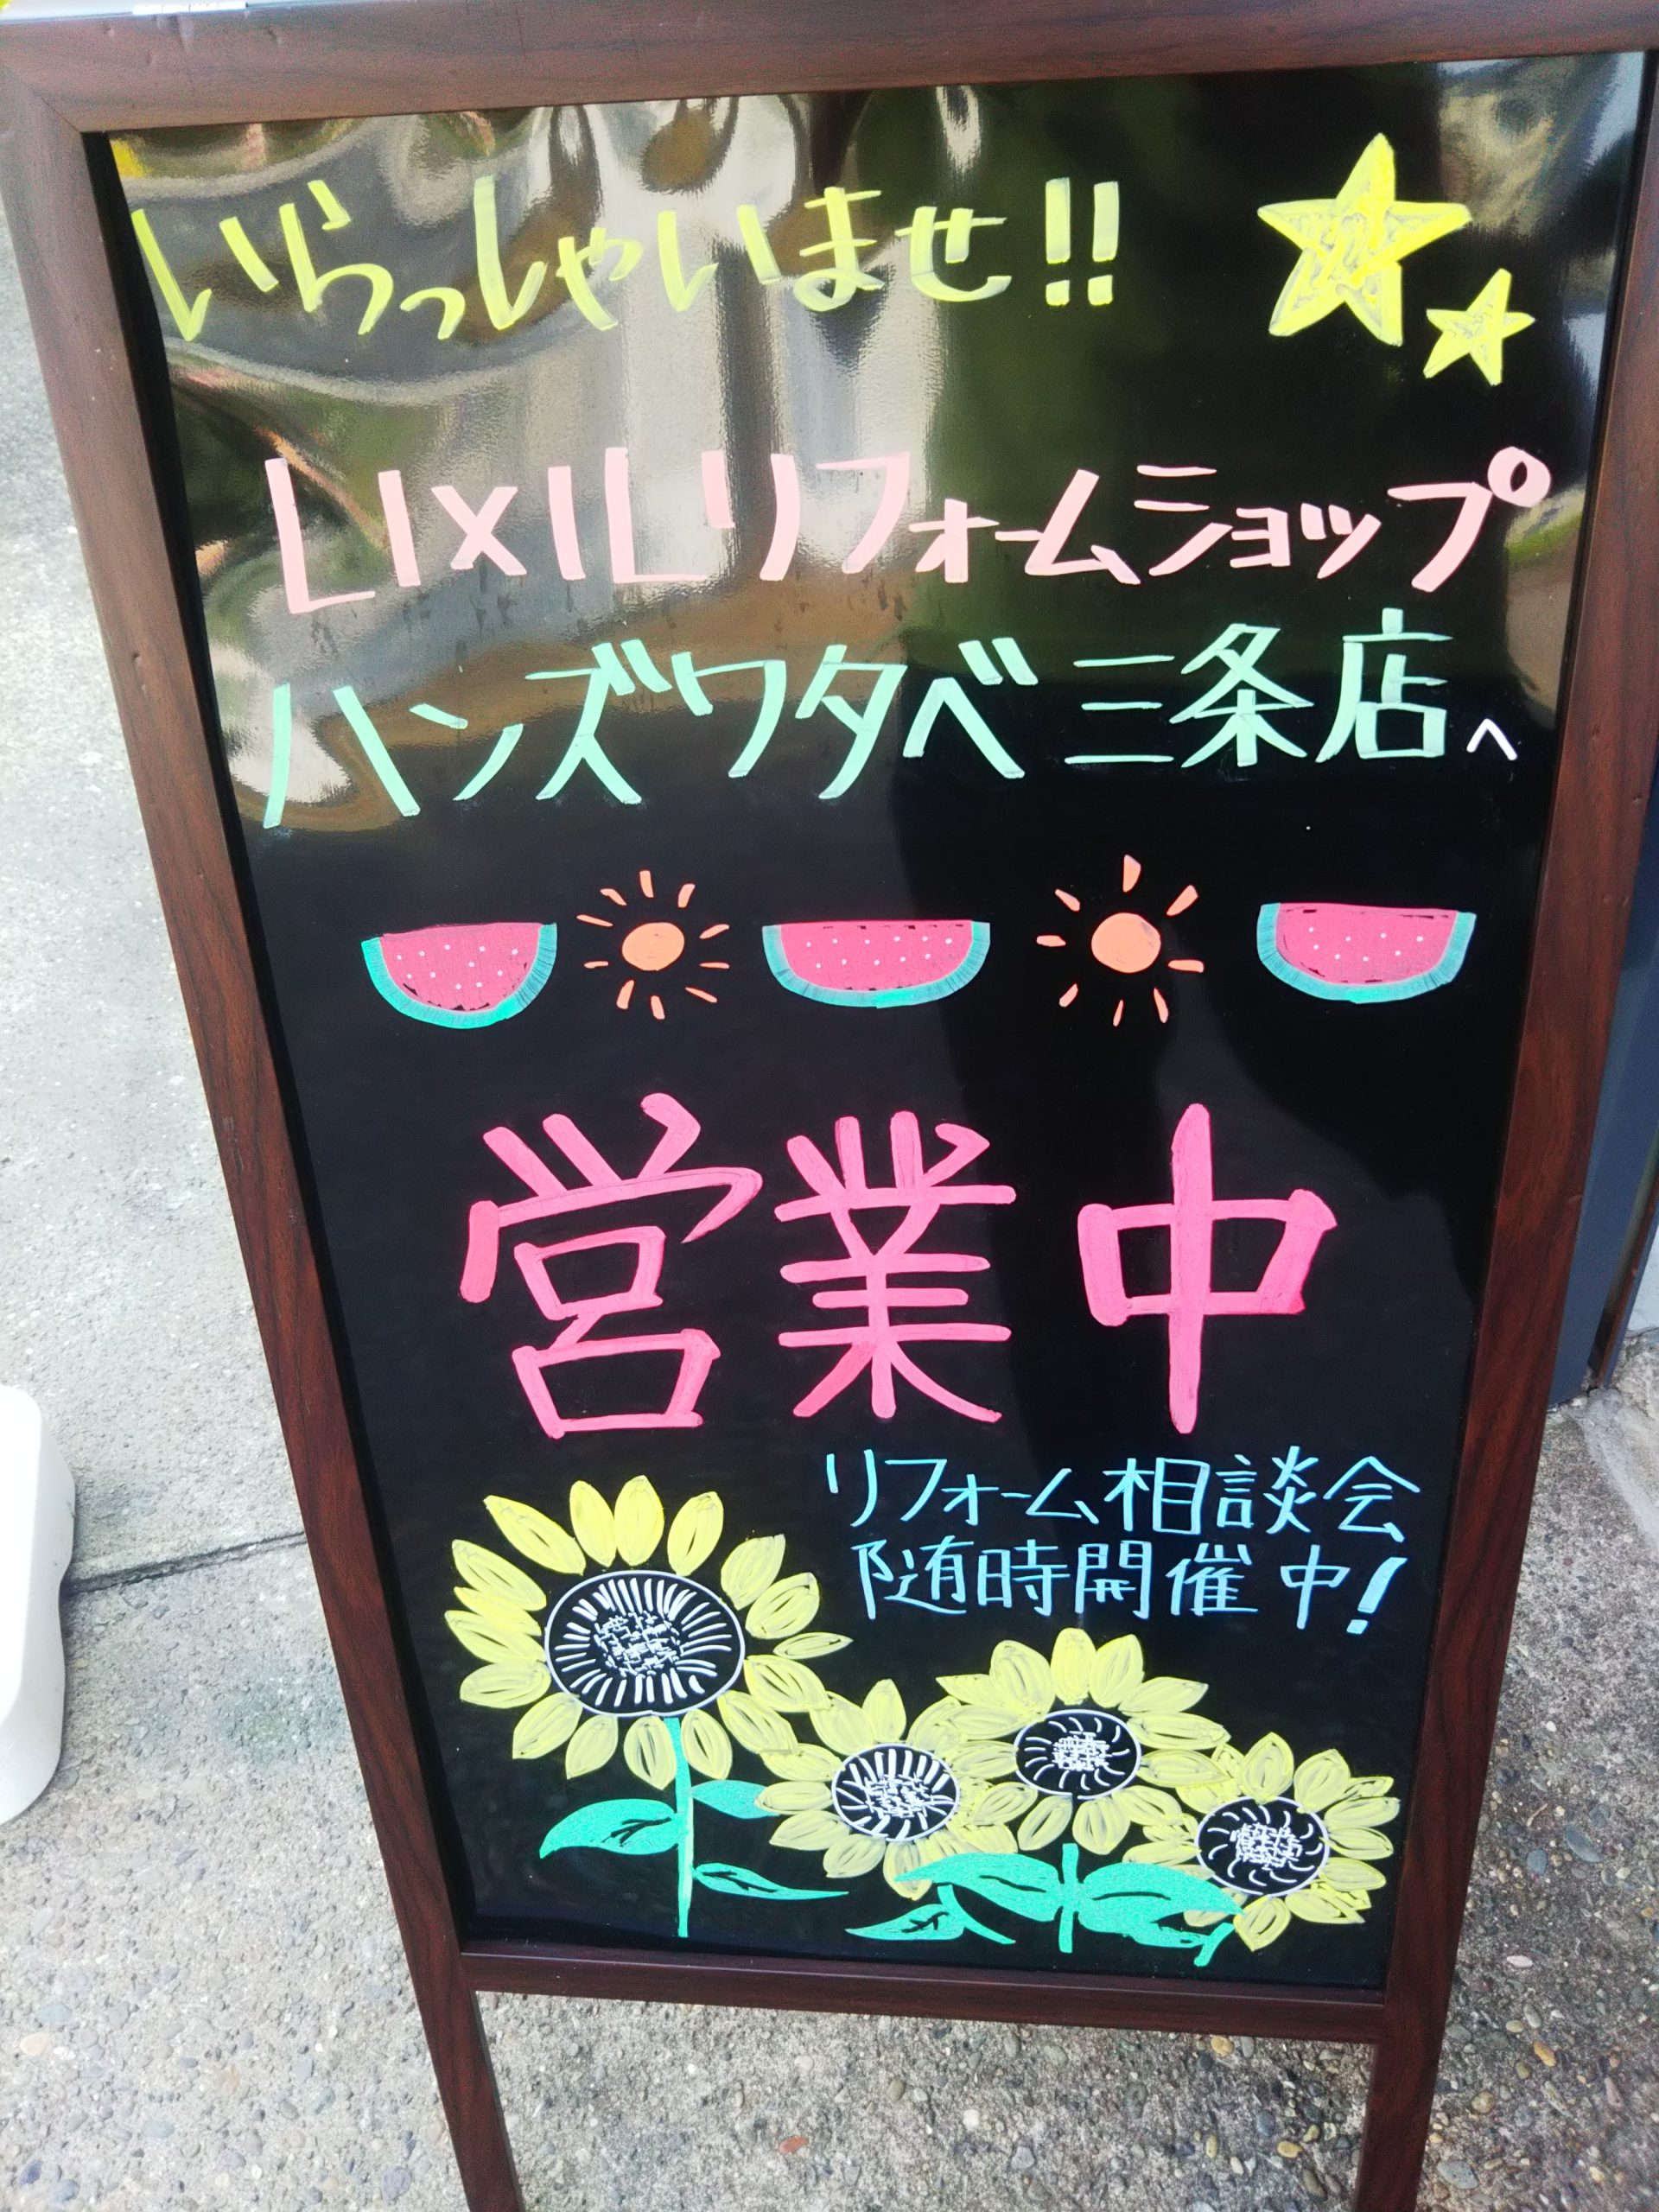 いらっしゃいませ!!
LIXILリフォームショップ
ハンズワタベ三条店へ
営業中
リフォーム相談会
随時開催中!